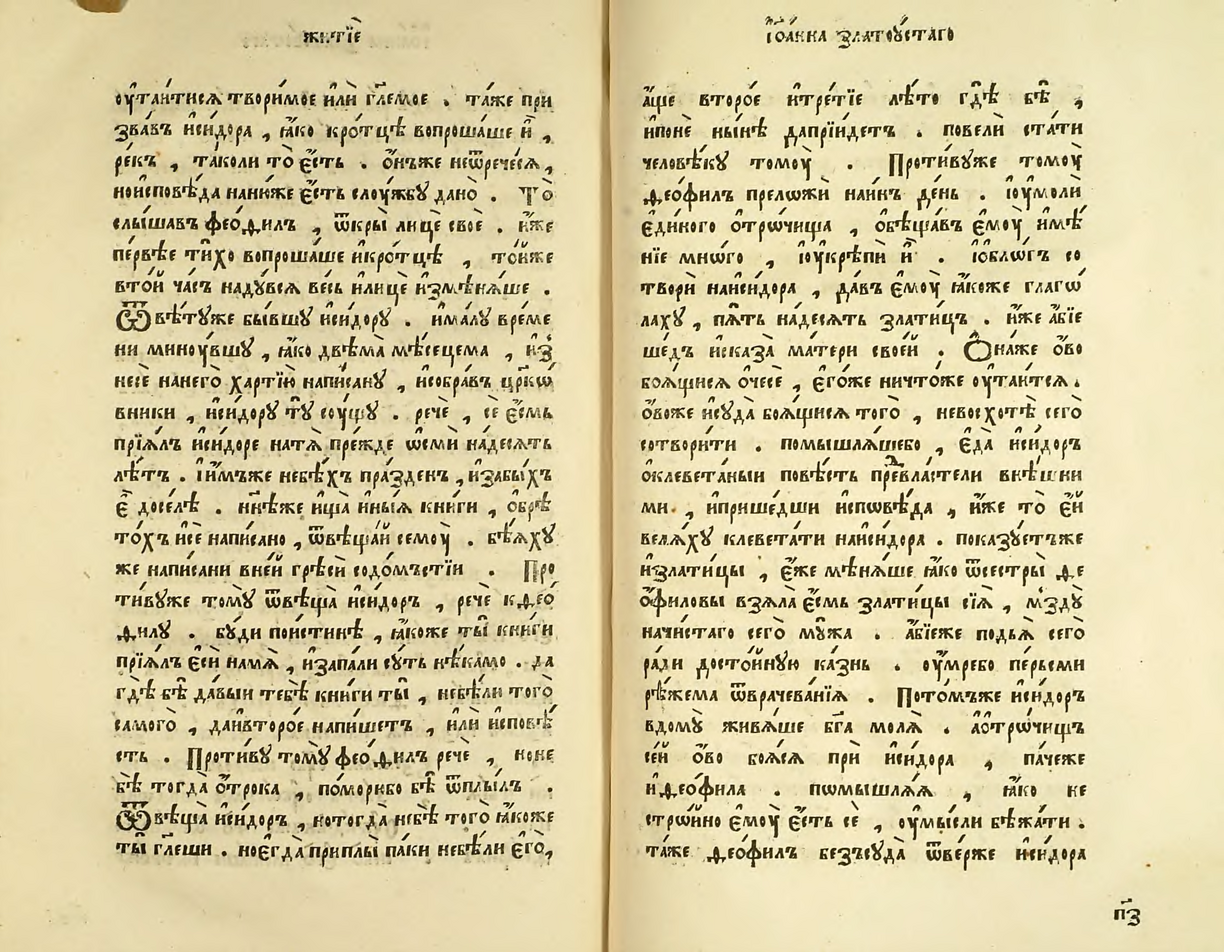 житїѐ
ѹ҆таи́тисѧ твори́мое и҆лѝ гл҃емое . таже при
зва́въ и҆си́дора , ꙗ҆́ко кро́тцѣ вопроша́ше и҆̀ ,
ре́къ , та́коли то̀ є҆́сть . ѻ҆́нъже неѿрече́сѧ ,
но и҆сповѣ́да нани́же є҆́сть слоу́жбꙋ дано̀ . То̀
слы́шавъ фео́ѳилъ , ѿкры̀ лицѐ своѐ . и҆́же
пе́рвѣе ти́хо вопроша́ше и҆кро́тцѣ , то́йже
вто́й ча́съ надꙋ́всѧ ве́сь и҆лицѐ и҆змѣнѧ́ше .
Ѿвѣ́тꙋже бы́вшꙋ и҆си́дорꙋ . и҆ма́лꙋ вре́ме
ни миноу́вшꙋ , ꙗ҆́ко двѣ́ма мѣ́сецема , и҆з̾
несѐ нанего̀ ха́ртїю напи́санꙋ , и҆собра́въ цр҃кѡ́
вники , и҆си́дорꙋ тꙋ̀ со́ущꙋ . речѐ , сѐ є҆́смь
прїѧ́лъ и҆си́доре натѧ̀ пре́жде ѡ҆сми́ надесѧть
лѣ́тъ . і҆и́мъже небѣ́хъ пра́зденъ , и҆забы́хъ
є҆̀ доселѣ̀ . нн҃ѣже и҆щѧ̀ и҆ны́ѧ кни́ги , ѻ҆брѣ
то́хъ и҆сѐ напи́сано , ѿвѣща́й семоу̀ . бѣ́ѧхꙋ
же напи́сани вне́й грѣ́си содо́мъстїи . Про
ти́вꙋже томꙋ̀ ѿвѣща̀ и҆си́доръ , речѐ кѳео́
ѳи́лꙋ . бꙋ́ди пои́стиннѣ , ꙗ҆́коже ты̀ кни́ги
прїѧ́лъ є҆сѝ намѧ̀ , и҆запа́ли сꙋ́ть нѣ́камо . да
гдѣ̀ бѣ̀ давы́и тебѣ̀ кни́ги ты̀ , небѣ́ли того̀
самого̀ , даивторо́е напи́шетъ , и҆лѝ и҆сповѣ́
сть . Проти́вꙋ томꙋ̀ фео́ѳилъ речѐ , но не
бѣ̀ тогда̀ ѻ҆́трока , помо́рибо бѣ̀ ѿплы́лъ .
Ѿвѣща̀ и҆си́доръ , нотогда̀ небѣ̀ того̀ ꙗ҆́коже
ты̀ гл҃еши . ное҆гда̀ приплы̀ па́ки небѣ́ли є҆го̀ ,
і҆ѡа́нна златоу́стаго
а҆́ще второ́е и҆тре́тїе лѣ́то гдѣ̀ бѣ̀ ,
и҆поне́ ны́нѣ дапрїи́детъ . повелѝ ста́ти
человѣ́кꙋ томоу̀ . Проти́вꙋже томоу̀
ѳео́филъ преложѝ наи́нъ де́нь . і҆ѹмолѝ
є҆ди́ного ѻ҆́трѡчища , ѻ҆бѣща́въ є҆моу̀ и҆мѣ́
нїе мно́го , і҆ѹкрѣпѝ и҆̀ . і҆ѻблѡ́гъ со
творѝ наи҆си́дора , да́въ є҆моу̀ ꙗ҆́коже глаго́
лахꙋ , пѧ́ть надесѧть зла́тицъ . и҆́же а҆́бїе
ше́дъ и҆сказа̀ ма́тери свое́й . Ѻ҆на́же ѻ҆́во
боѧ́щисѧ ѻ҆чесѐ , є҆го́же ничто́же ѹ҆таи́тсѧ .
ѻ҆́воже и҆сꙋда̀ боѧ́щисѧ того̀ , невосхотѣ̀ сего̀
сотвори́ти . помышлѧ́шебо , є҆да̀ и҆си́доръ
ѻ҆клевета́ныи повѣ́сть превла́стели внѣ́шни
ми . , и҆прише́дши и҆сповѣ́да , и҆́же то̀ є҆́й
велѧ́хꙋ клевета́ти наи҆си́дора . показꙋ́етъже
и҆зла́тицы , є҆́же мѣнѧ́ше ꙗ҆́ко ѿсестры̀ ѳе
ѻ҆́филовы взѧ́ла є҆́смь зла́тицы сїѧ̀ , мьздꙋ̀
начи́стаго сего̀ мꙋ́жа . а҆́бїеже подьѧ̀ сего̀
ра́ди досто́йнꙋю ка́знь . ѹ҆́мребо пе́рьсми
рѣ́жема ѿврачева́нїѧ . Пото́мъже и҆си́доръ
вдомꙋ̀ живѧ́ше бг҃а молѧ̀ . а҆ѻ́трѡчищъ
се́й ѻ҆́во боѧ́сѧ прѝ и҆си́дора , па́чеже
и҆ѳео́фила . помышлѧ́ѧ , ꙗ҆́ко не
стро́йно є҆моу̀ є҆́сть сѐ , ѹ҆мы́сли бѣжа́ти .
та́же ѳео́филъ безъсꙋда̀ ѿве́рже и҆си́дора
п҃з